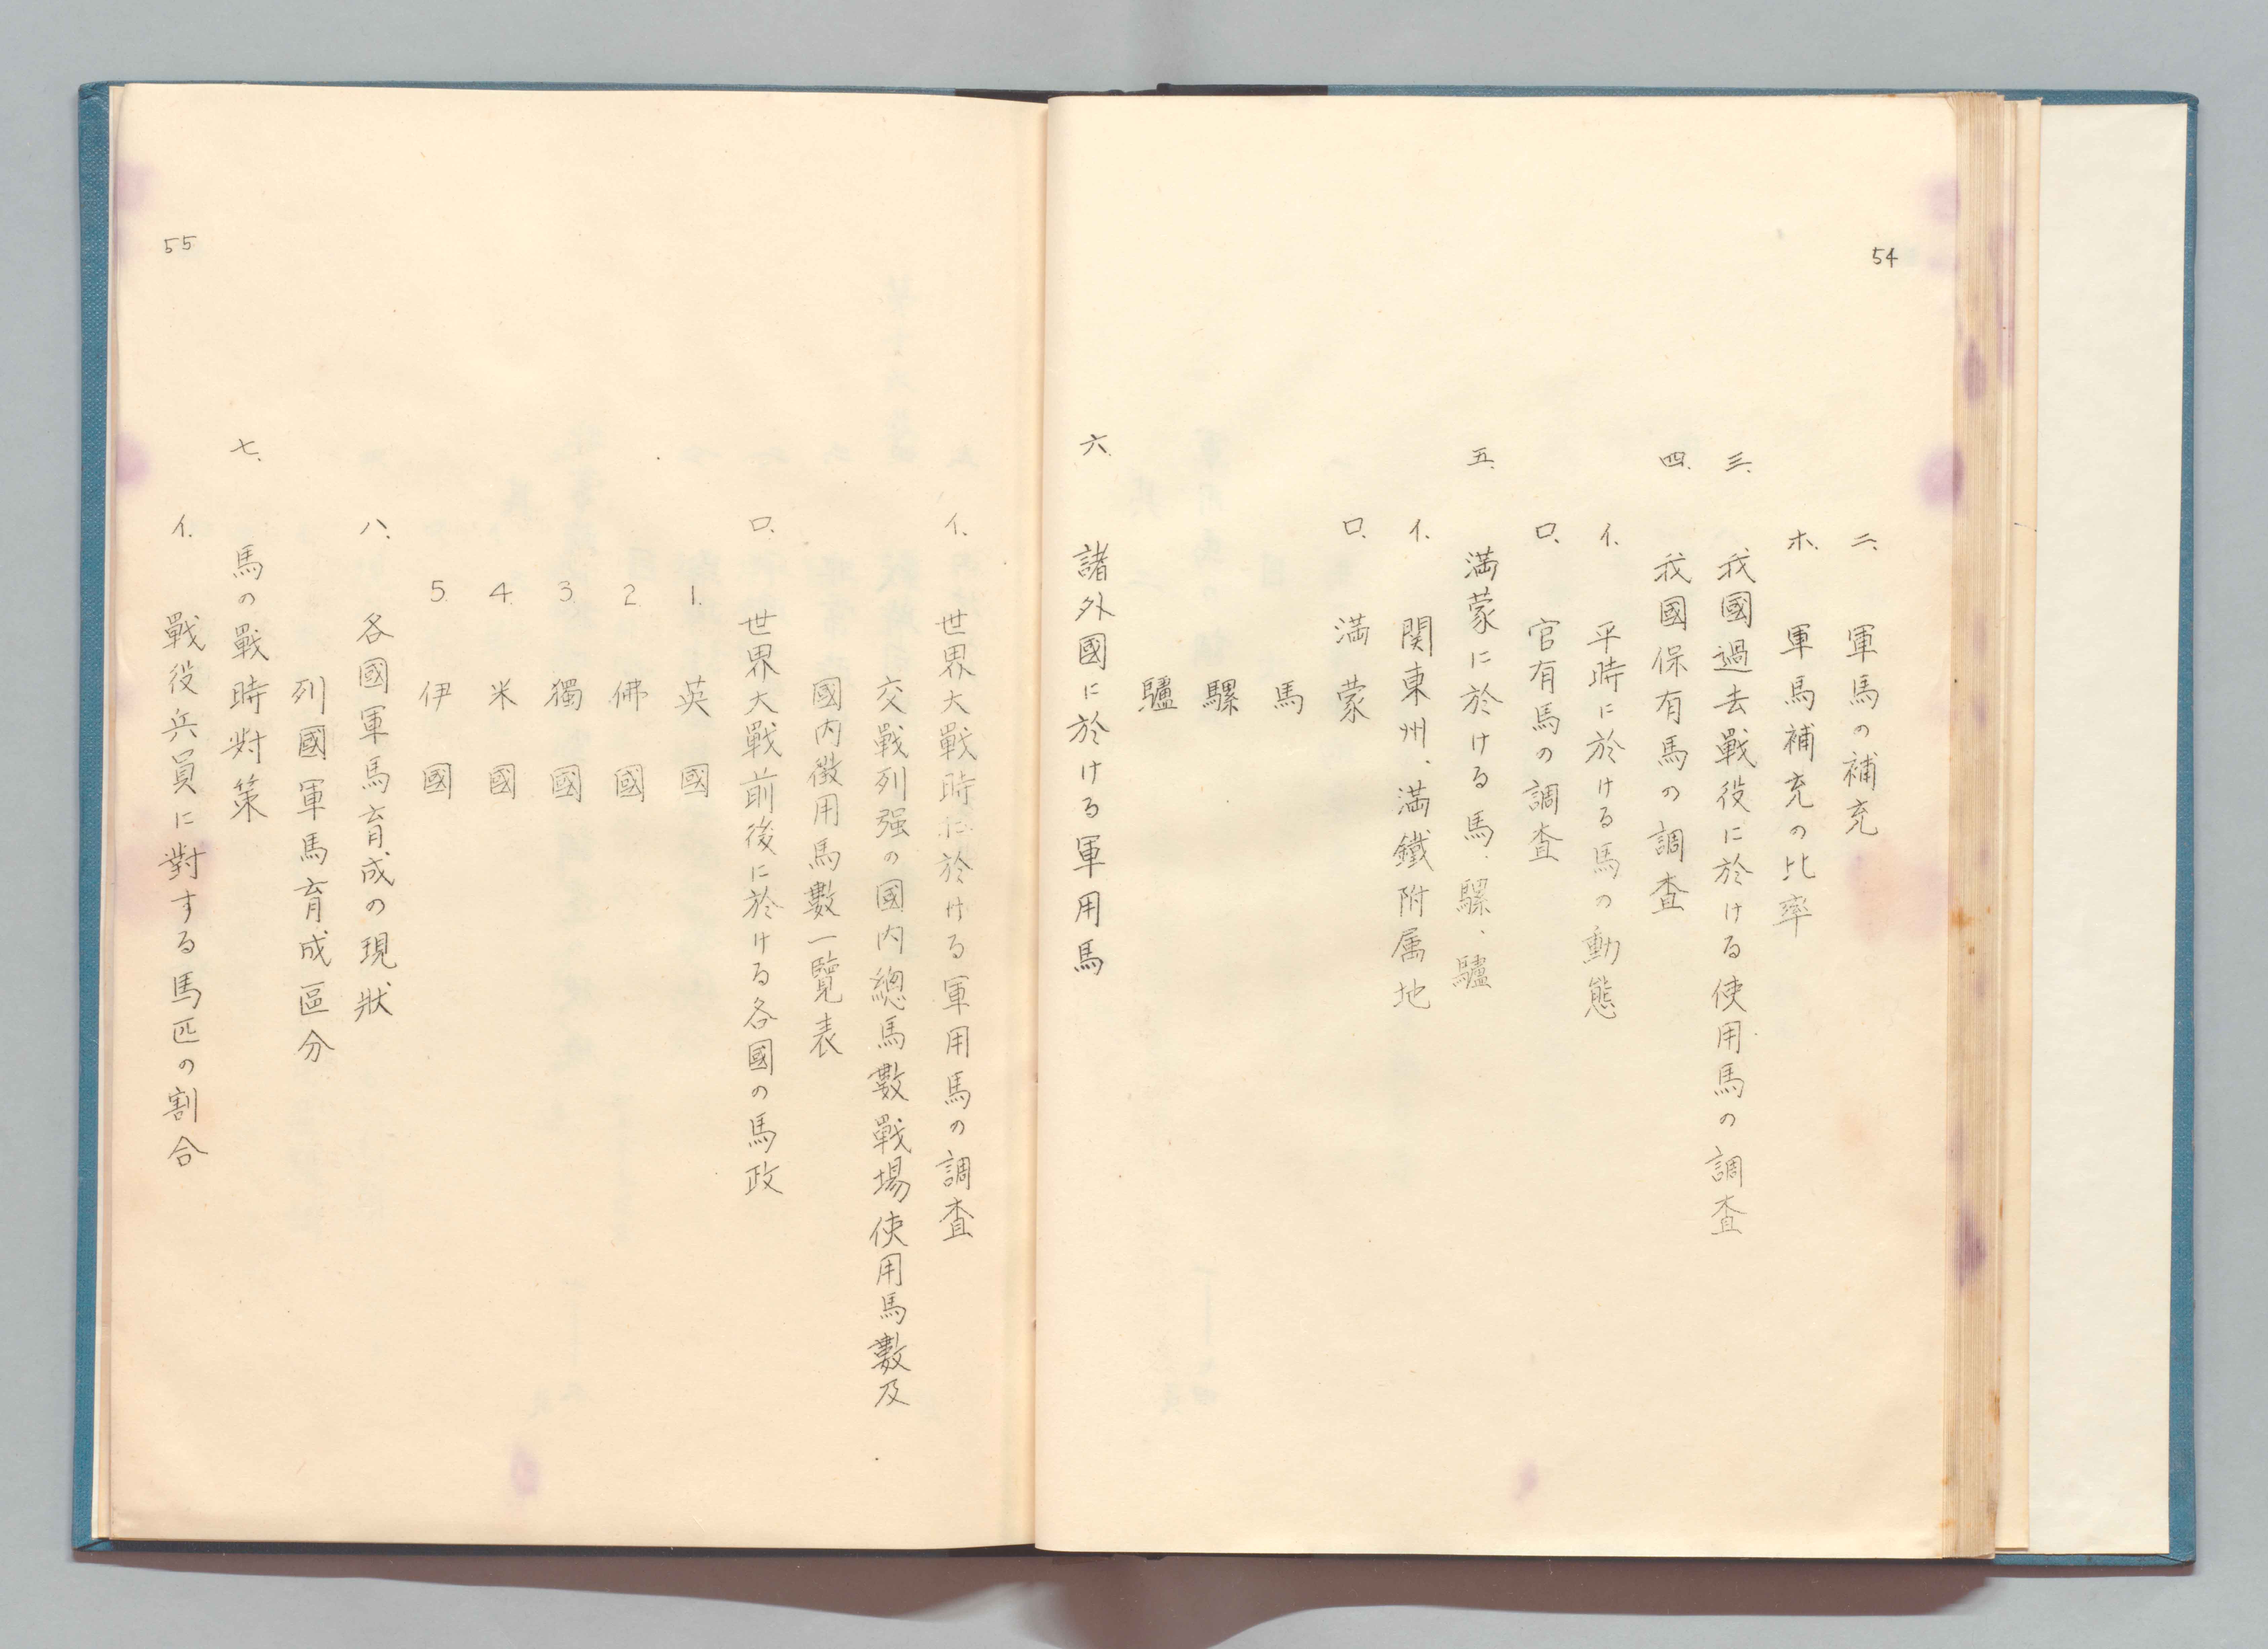 54
ニ、軍馬の補充
ホ、軍馬補充の比率
三、我國過去戰役に於ける使用馬の調査
四、我國保有馬の調査
イ、平時に於ける馬の動態
ロ、官有馬の調査
五、満蒙に於ける馬、騾、驢
イ、関東州、満鐵附属地
ロ、満蒙
馬
騾
驢
六、諸外國に於ける軍用馬
55
イ、世界大戰時に於ける軍用馬の調査
交戰列强の國内總馬數戰場使用馬數及
國内徴用馬數一覽表
ロ、世界大戰前後に於ける各國の馬政
1. 英國
2. 佛國
3. 獨國
4. 米國
5. 伊國
ハ、各國軍馬育成の現狀
列國軍馬育成區分
七、馬の戰時對策
イ、戰役兵員に對する馬匹の割合